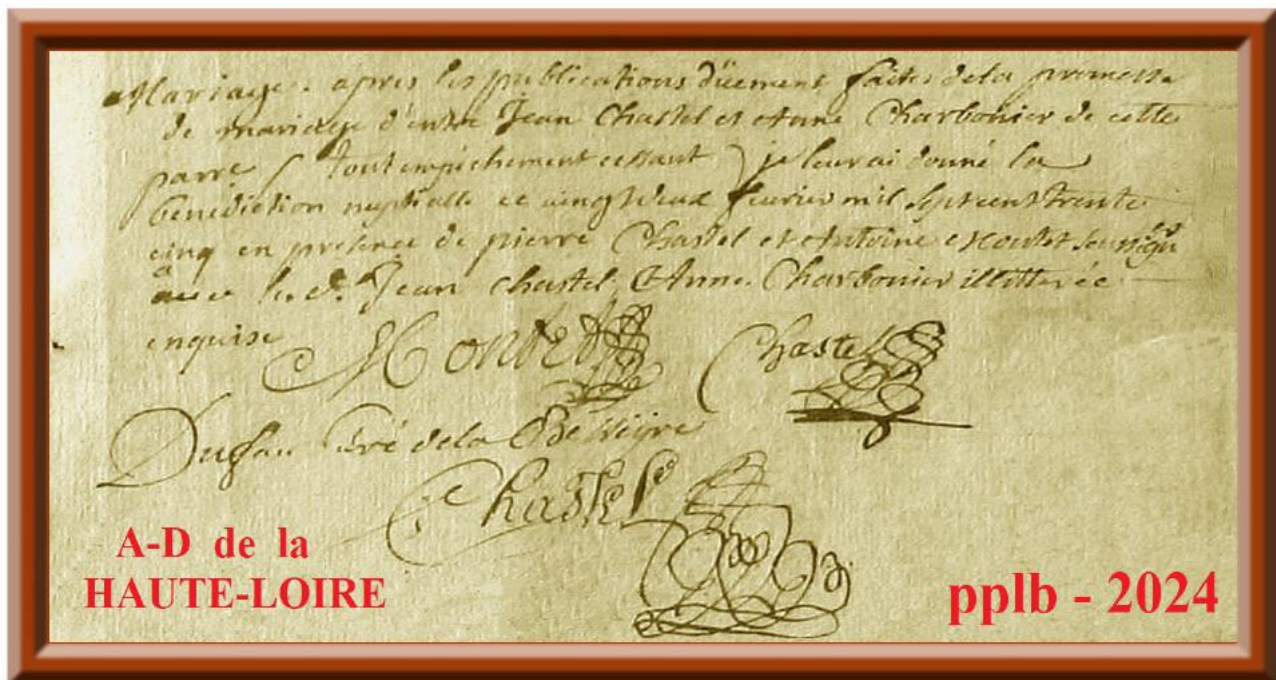 Mariage. apres les publications düement faites dela promesse
de mariage d'entre Jean Chastel et Anne Charbonier de cette
parre ( tout empéchement cessant ) je leur ai donné la
bénédiction nuptialle ce vingt deux fevrier mil sept cent trente
cinq en présence de pierre Chastel et Antoine
avec le d. Jean chastel, Anne Charbonier illitterée
enquise
Chastel
Curé dela Besseyre
Chastel
A-D de la
HAUTE-LOIRE
pplb - 2024